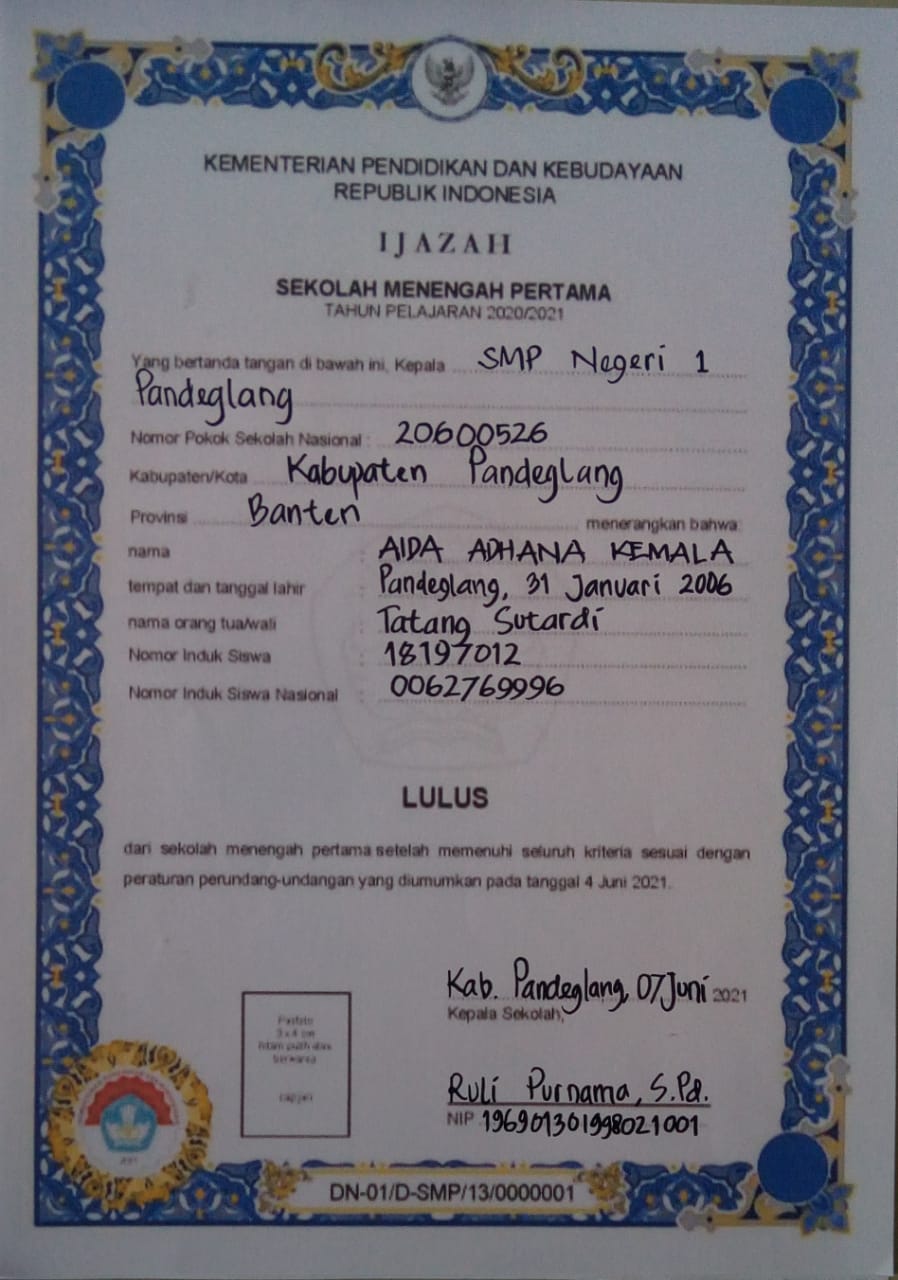 KEMENTERIAN PENDIDIKAN DAN KEBUDAYAAN
REPUBLIK INDONESIA
IJAZAH
SEKOLAH MENENGAH PERTAMA
TAHUN PELAJARAN 2020/2021
Yang bertanda tangan di bawah ini, Kepala SMP Negeri 1
Pandeglang
Nomor Pokok Sekolah Nasional : 20600526
Kabupaten/Kota Kabupaten Pandeglang
Provinsi Banten menerangkan bahwa:
nama : AIDA ADHANA KEMALA
tempat dan tanggal lahir : Pandeglang, 31 Januari 2006
nama orang tua/wali : Tatang Sutardi
Nomor Induk Siswa : 18197012
Nomor Induk Siswa Nasional : 0062769996
LULUS
dari sekolah menengah pertama setelah memenuhi seluruh kriteria sesuai dengan
peraturan perundang-undangan yang diumumkan pada tanggal 4 Juni 2021.
Kab. Pandeglang, 07 Juni 2021
Kepala Sekolah,
Pasfoto
3 x 4 cm
hitam putih atau
berwarna
cap jari
Ruli Purnama, S.Pd.
NIP 196901301998021001
DN-01/D-SMP/13/0000001